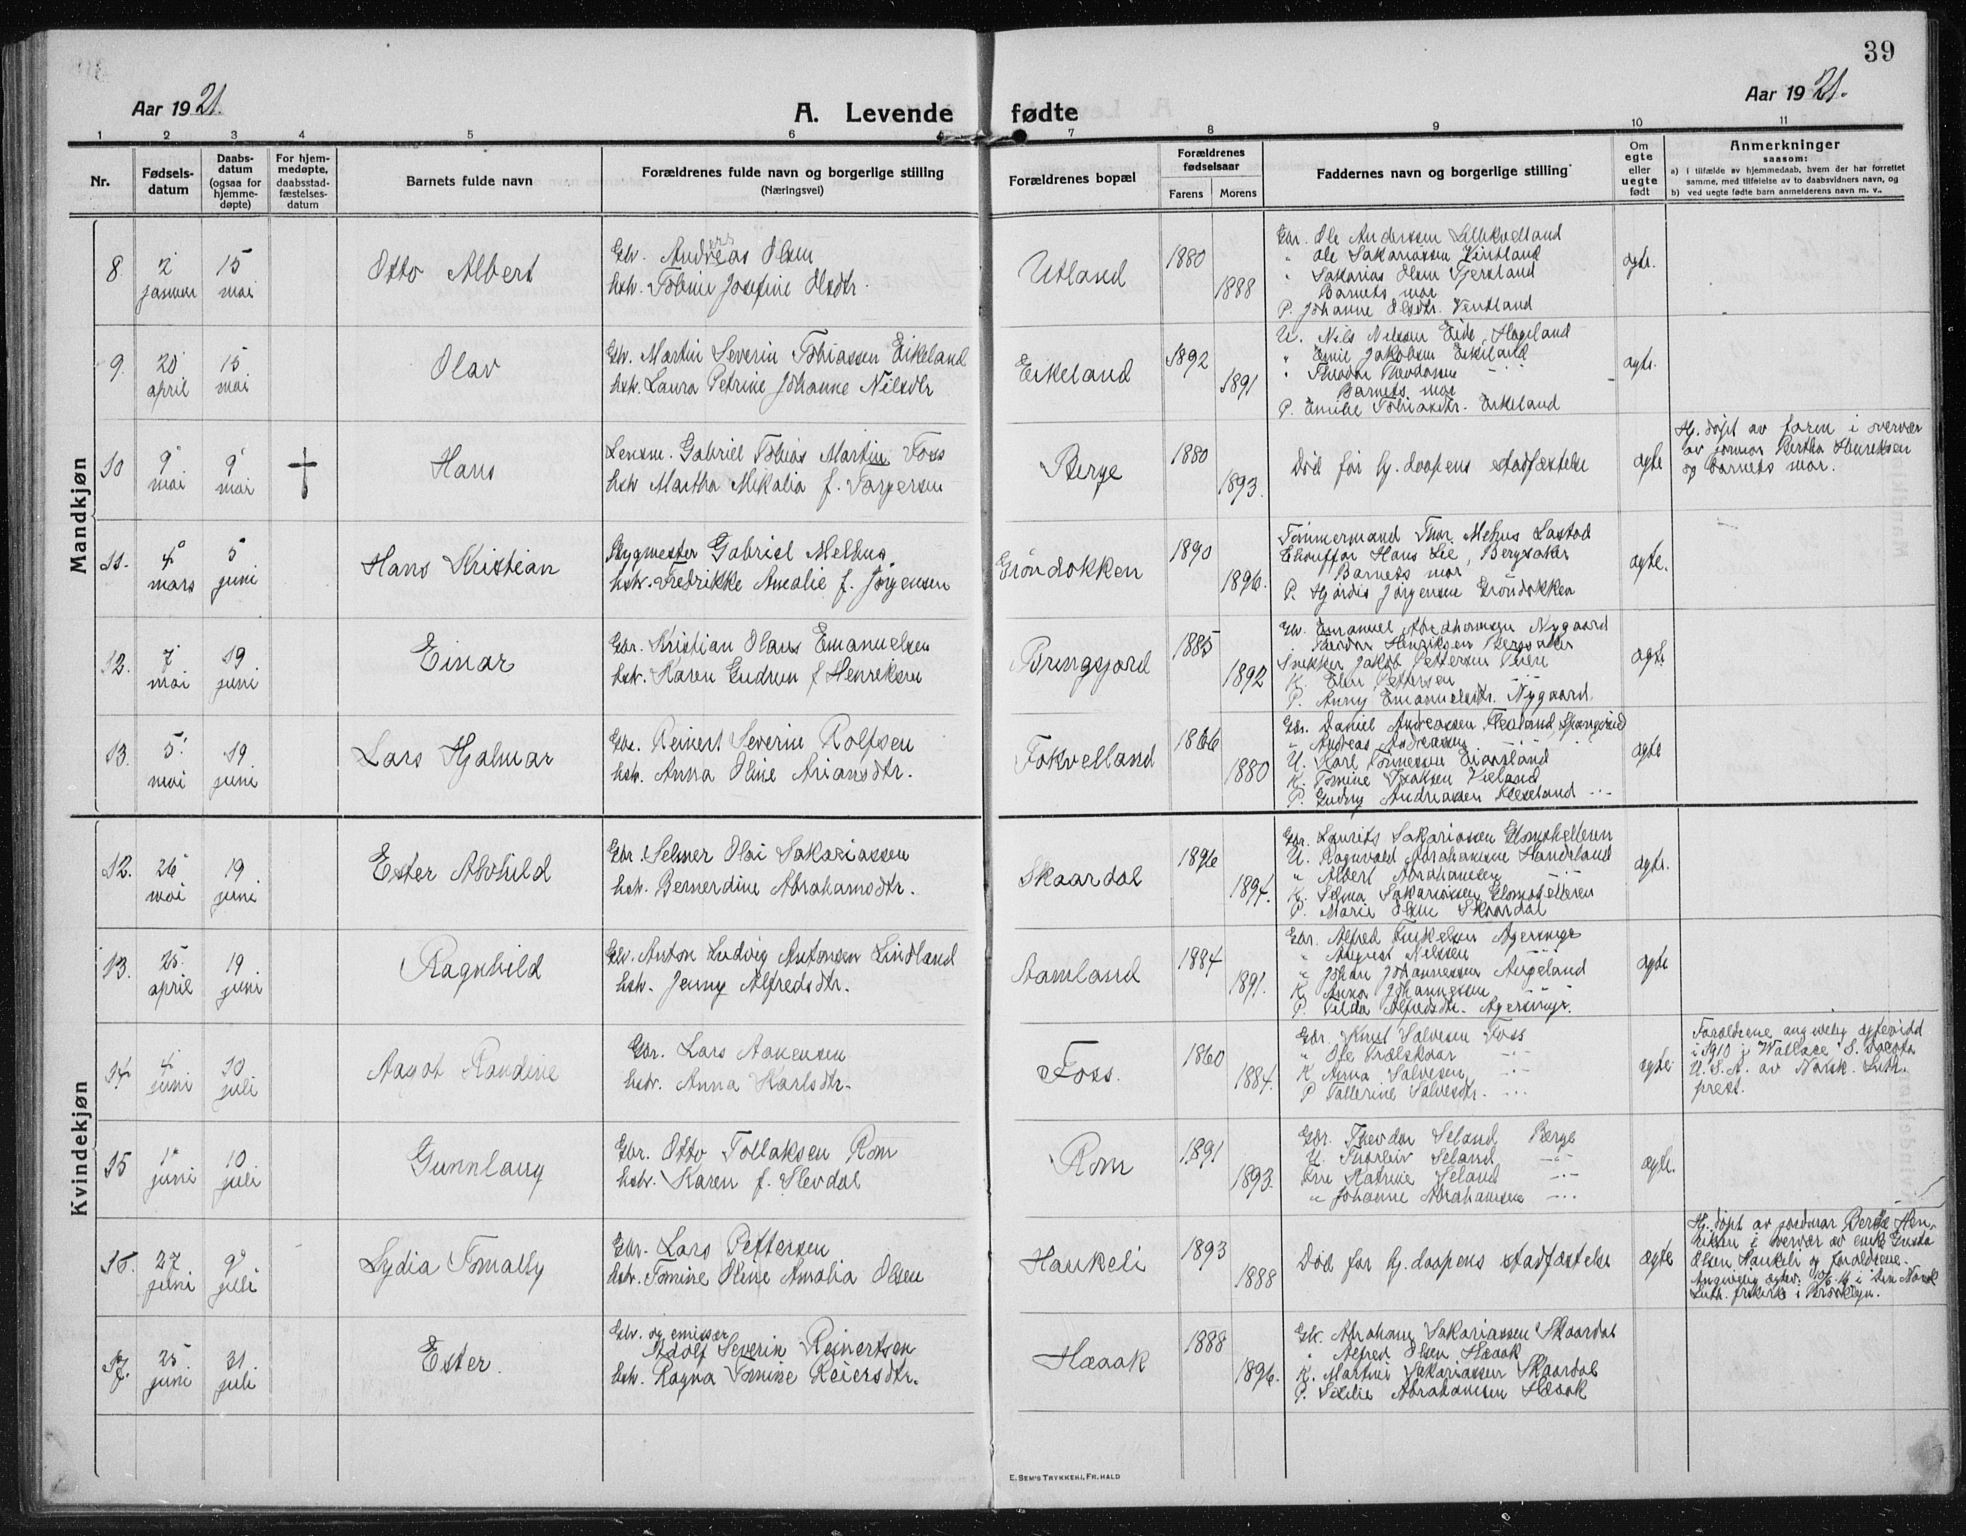 39
Aar 1921.
A. Levende fødte
Aar 1921.
1 2 3 4 5 6 7 8 9 10 11
Nr.
Fødsels-datum
Daabs-datum (ogsaa for hjemme-døpte)
For hjem-medøpte, daabsstad-fæstelses-datum
Barnets fulde navn
Forældrenes fulde navn og borgerlige stilling
(Næringsvei)
Forældrenes bopæl
Forældrenes fødselsaar
Farens Morens
Faddernes navn og borgerlige stilling
Om egte eller uegte født
Anmerkninger
saasom:
a) i tilfælde av hjemmedaab, hvem der har forrettet samme, med tilføielse av to daabsvidners navn, og
b) ved uegte fødte barn anmelderens navn m. v.
Mandkjøn
8 2 januar 15 mai
Otto Albert
Gbr. Andreas Olsen
hstr. Tobine Josefine Olsdtr.
Utland
1880 1888
Gbr. Ole Anderssen Lillekvelland
" Ole Sakariassen
" Sakarias Olsen
Barnets mor
P. Johanne Olsdtr.
egte.
9. 20 april 15. mai
Olav
Gbr. Martin Severin Tobiassen Eikeland
hstr. Laura Petrine Johanne Nilsdtr
Eikeland
1892 1891
U. Nils Nilssen Eide, Høgeland
" Emil Jakobsen Eikeland
" Theodor
Barnets mor
P. Emilie Tobiasdtr. Eikeland
egte.
10 9 mai 9 mai †
Hans
Lensm. Gabriel Tobias Martin Foss
hstr Martha Mikalia f. Torgersen
Berge
1880 1893.
Død før hj. daapens stadfæstelse
egte
Hj. døpt av faren i overvær
av jormor Bertha Henriksen
og barnets mor.
11. 4 mars 5 juni
Hans Kristian
Bygmester Gabriel Melhus
hstr. Fredrikke Amalie f. Jørgensen
Grøndokken
1890 1896.
Tømmermand Thor Mehus
Chauffør Hans Lie, Bergsaker
Barnets mor
P. Hjørdis Jørgensen Grøndokken
egte.
12. 7 mai 19 juni
Einar
Gbr. Kristian Olaus Emanuelsen
hstr. Karen Gudrun f Henriksen
Bringsjord
1885 1892
Gbr. Emanuel Nygaard
Henriksen Bergsaker
Snekker Jakob Pettersen
K. Elen Pettersen
P. Anny Emanuelsdtr. Nygaard.
egte
13. 5 mai 19 juni
Lars Hjalmar
Gbr. Reinert Severin Rolfsen
hstr. Anna Oline Ariansdtr.
Fokvelland
1866 1880
Gbr. Daniel Andreassen
" Andreas Andreassen
U. Karl Tønnessen
K. Tomine Isaksen
P. Gudny Andreassen
egte
Kvindekjøn
12. 26 mai 19 juni
Ester Alvhild
Gbr. Selmer Olai Sakariassen
hstr. Bernerdine Abrahamsdtr.
Skaardal
1896 1894.
Gbr. Laurits Sakariassen Glomshelleren
U. Ragnvald Abrahamsen Handeland
" Albert Abrahamsen
K. Selma Sakariassen Glomshelleren
P. Marie Olsen Skaardal
egte.
13. 25 april 19 juni
Ragnhild
Gbr. Anton Ludvig Antonsen Lindland
hstr. Jenny Alfredsdtr.
Aamland
1884 1891.
Gbr. Alfred
" August Nilssen
" Johan Johannessen Augeland
K. Anna Johannessen
P. Vilda Alfredsdtr.
egte
14 4 juni 10 juli
Aagot Randine
Gbr. Lars Aanensen
hstr. Anna Karlsdtr.
Foss.
1860 1884.
Gbr. Knut Salvesen Foss
" Ole
K Anna Salvesen
P Tallerine Salvesdtr.
egte
Forældrene angivelig egteviet
i 1910 i Wallace S. Dacota
U.S.A. av Norsk Luth.
prest.
15 1 juni 10 juli
Gunnlaug
Gbr. Otto Tollaksen Rom
hstr. Karen f. Slevdal
Rom
1891 1893.
Gbr. Theodor Seland Berge
U. Thorleiv Seland
Fru Katrine Seland
" Johanne Abrahamsen
egte.
16. 27 juni 9 juli
Lydia Tomally
Gbr. Lars Pettersen
hstr. Tomine Oline Amalia Olsen
Haukeli
1893 1888
Død før hj. daapens stadfæstelse
egte
Hj. døpt av jordmor Berte Hen-
riksen i overvær av enke Gusta
Olsen Haukeli og forældrene.
Angivelig egtev. i den Norsk
Luth. frikirke i Brooklyn.
17. 25 juni 31. juli
Ester.
Gbr. og emissær
Adolf Severin Reinertsen
hstr. Ragna Tomine Reiersdtr.
Hæaak
1888 1896.
Gbr. Abraham Sakariassen Skaardal
" Alfred Olsen Hæaak
K. Martine Sakariassen Skaardal
P. Sælie Abrahamsen Hæaak
E. SEM'S TRYKKERI, FR.HALD